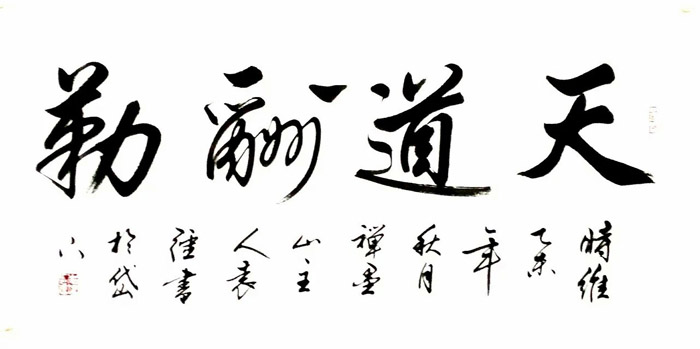 天道酬勤
時維
乙未
年
秋月
禪墨
山主
人袁
書
於岱
下